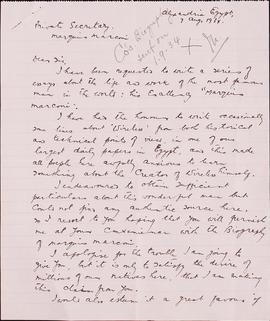 Alexandria Egypt,
7 Aug. 1934.
Private Secretary,
Marquis Marconi
C's Biography
1.9.34
Dear Sir,
I have been requested to write a series of
essays about the life and work of the most famous
man in the world: his Excellency "Marquis
Marconi".
I have had the honour to write occasionally
some lines about "Wireless" from both historical
and technical points of view in one of our
largest daily papers in Egypt, and this made
all people here awfully anxious to learn
something about the Creator of Wireless himself.
I endeavoured to obtain sufficient
particulars about this wonderful man but
could not find any authentic source here.
So I resort to you hoping that you will furnish
me at your convenience with the Biography
of Marquis Marconi.
I apologise for the trouble I am going to
give you but it is only to satisfy the desire of
millions of our natives here, that I am making
this claim from you.
I would also esteem it a great favour if